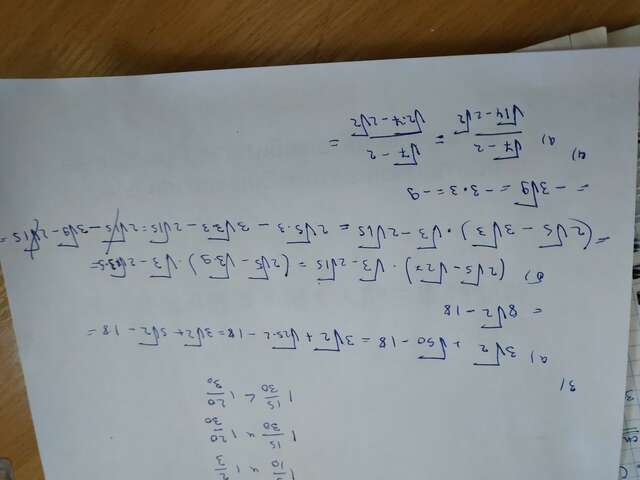 1 5/10 и 1 2/3
1 15/30 и 1 20/30
1 15/30 < 1 20/30
3)
а) 3√2 + √50 - 18 = 3√2 + √25·2 - 18 = 3√2 + 5√2 - 18 =
= 8√2 - 18
б) (2√5 - √27) · √3 - 2√15 = (2√5 - √3·9) · √3 - 2√3·5 =
= (2√5 - 3√3) · √3 - 2√15 = 2√5·3 - 3√3·3 - 2√15 = 2√15 - 3√9 - 2√15 =
= -3√9 = -3·3 = -9
4)
а) (√7 - 2)/(√14 - 2√2) = (√7 - 2)/(√2·7 - 2√2) =